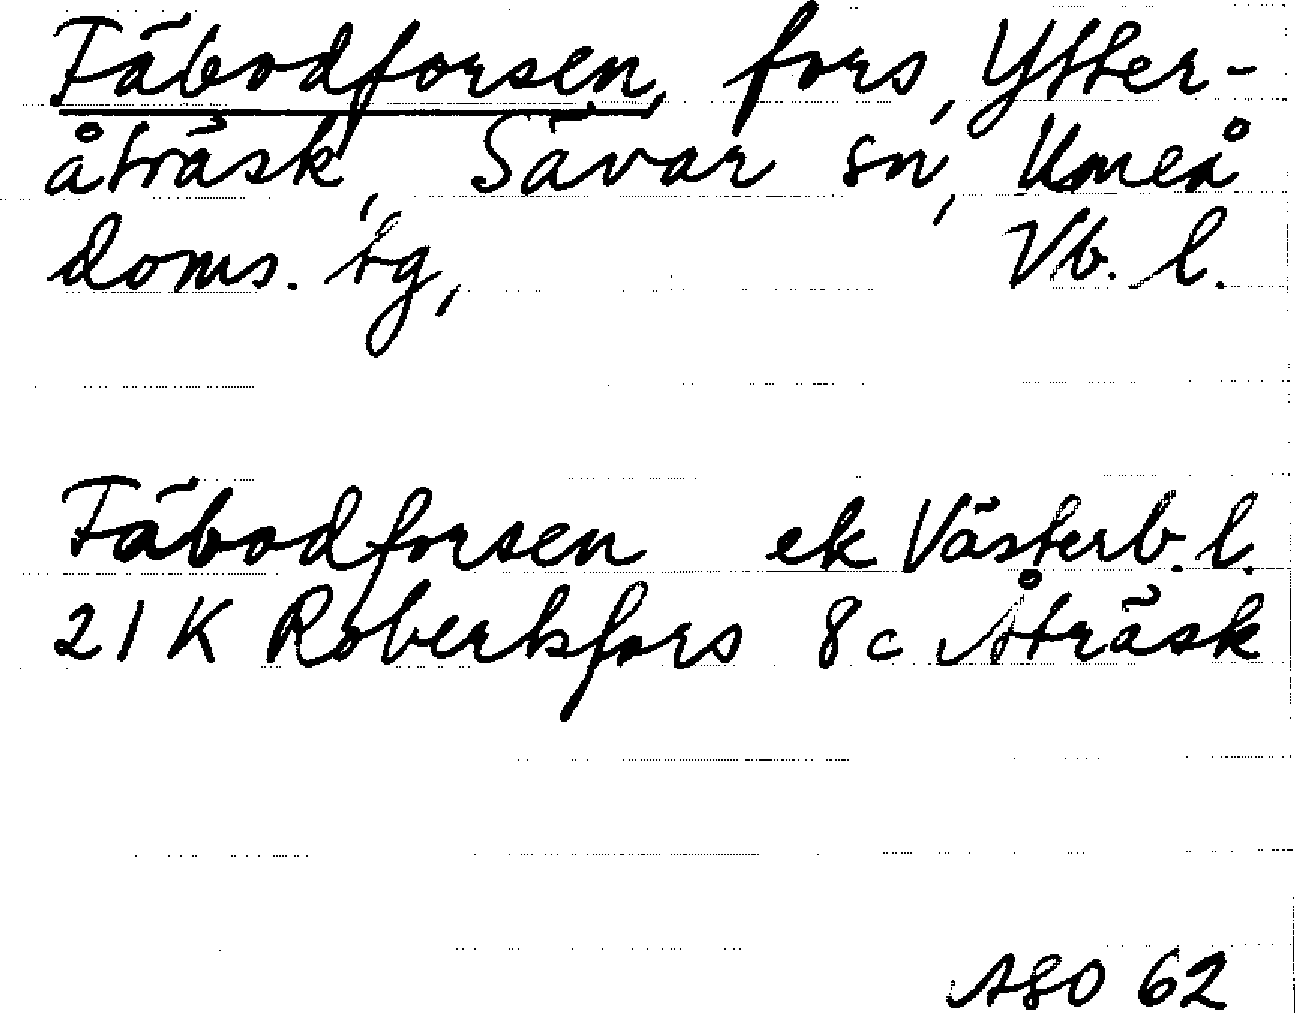 Fäbodforsen, fors, Ytter-
åträsk, Sävar sn, Umeå
doms. tg, Vb. l.
Fäbodforsen ek Västerb. l.
21 K Robertsfors 8 c Åträsk
ASO 62